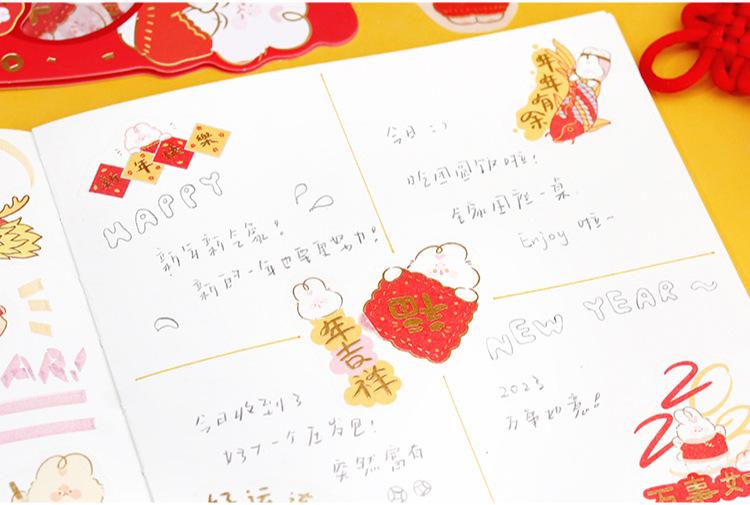 新年快樂
HAPPY
新年新气象!
新的一年也要更努力!
年年有余
今日:)
吃团圆饭啦!
全家围在一桌
Enjoy 啦~
福
年吉祥
NEW YEAR ~
2023
万事如意!
今日收到了
突然富有
好运
202
万事如